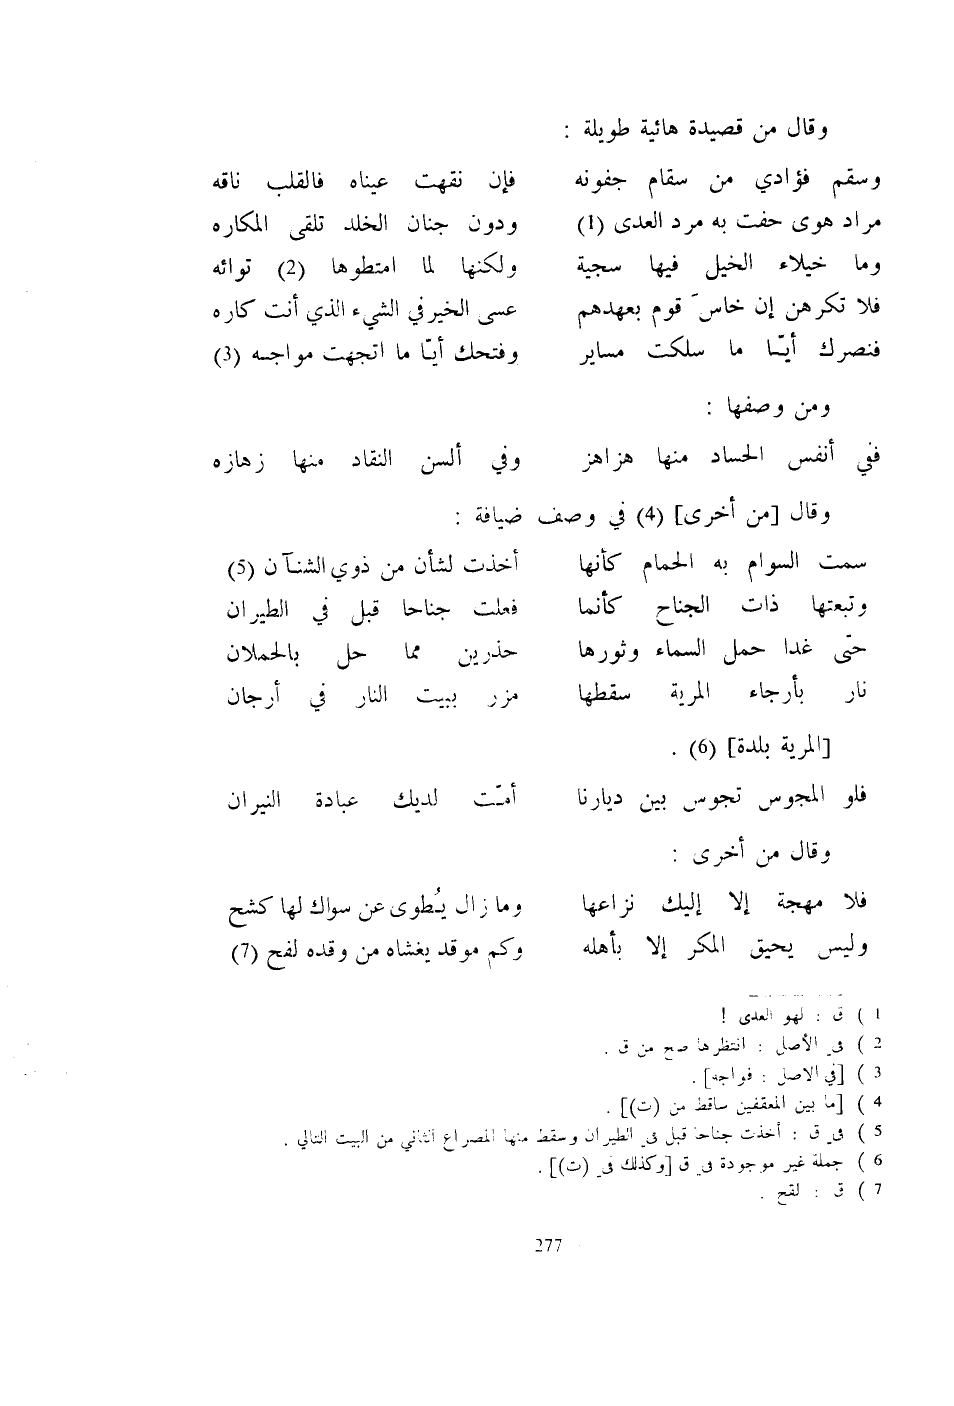 وقال من قصيدة هائية طويلة :
وسقم فؤادي من سقام جفونه فإن نقهت عيناه فالقلب ناقه
مراد هوى حفت به مرد العدى (1) ودون جنان الخلد تلقى المكاره
وما خيلاء الخيل فيها سجية ولكنها لما امتطوها (2) توائه
فلا تكرهن إن خاسَ قوم بعهدهم عسى الخير في الشيء الذي أنت كاره
فنصرك أيّما ما سلكت مساير وفتحك أيّا ما اتجهت مواجه (3)
ومن وصفها :
ففي أنفس الحساد منها هزاهز وفي ألسن النقاد منها زهازه
وقال [من أخرى] (4) في وصف ضيافة :
سمت السوام به الحمام كأنها أخذت لشأن من ذوي الشنآن (5)
وتبعتها ذات الجناح كأنما فعلت جناحا قبل في الطيران
حتّى غدا حمل السماء وثورها حذرين مما حل بالحملان
نار بأرجاء المرية سقطها مزر ببيت النار في أرجان
[المرية بلدة] (6) .
فلو المجوس تجوس بين ديارنا أمّت لديك عبادة النيران
وقال من أخرى :
فلا مهجة إلا إليك نزاعها وما زال يُطوى عن سواك لها كشح
وليس يحيق المكر إلا بأهله وكم موقد يغشاه من وقده لفح (7)
1 ) ق : لهو العدى !
2 ) في الأصل : انتظرها صح من ق .
3 ) [في الاصل : فواجه] .
4 ) [ما بين المعقفين ساقط من (ت)] .
5 ) في ق : أخذت جناحا قبل في الطيران وسقط منها المصراع الثاني من البيت التالي .
6 ) جملة غير موجودة في ق [وكذلك في (ت)] .
7 ) ق : لقح .
277